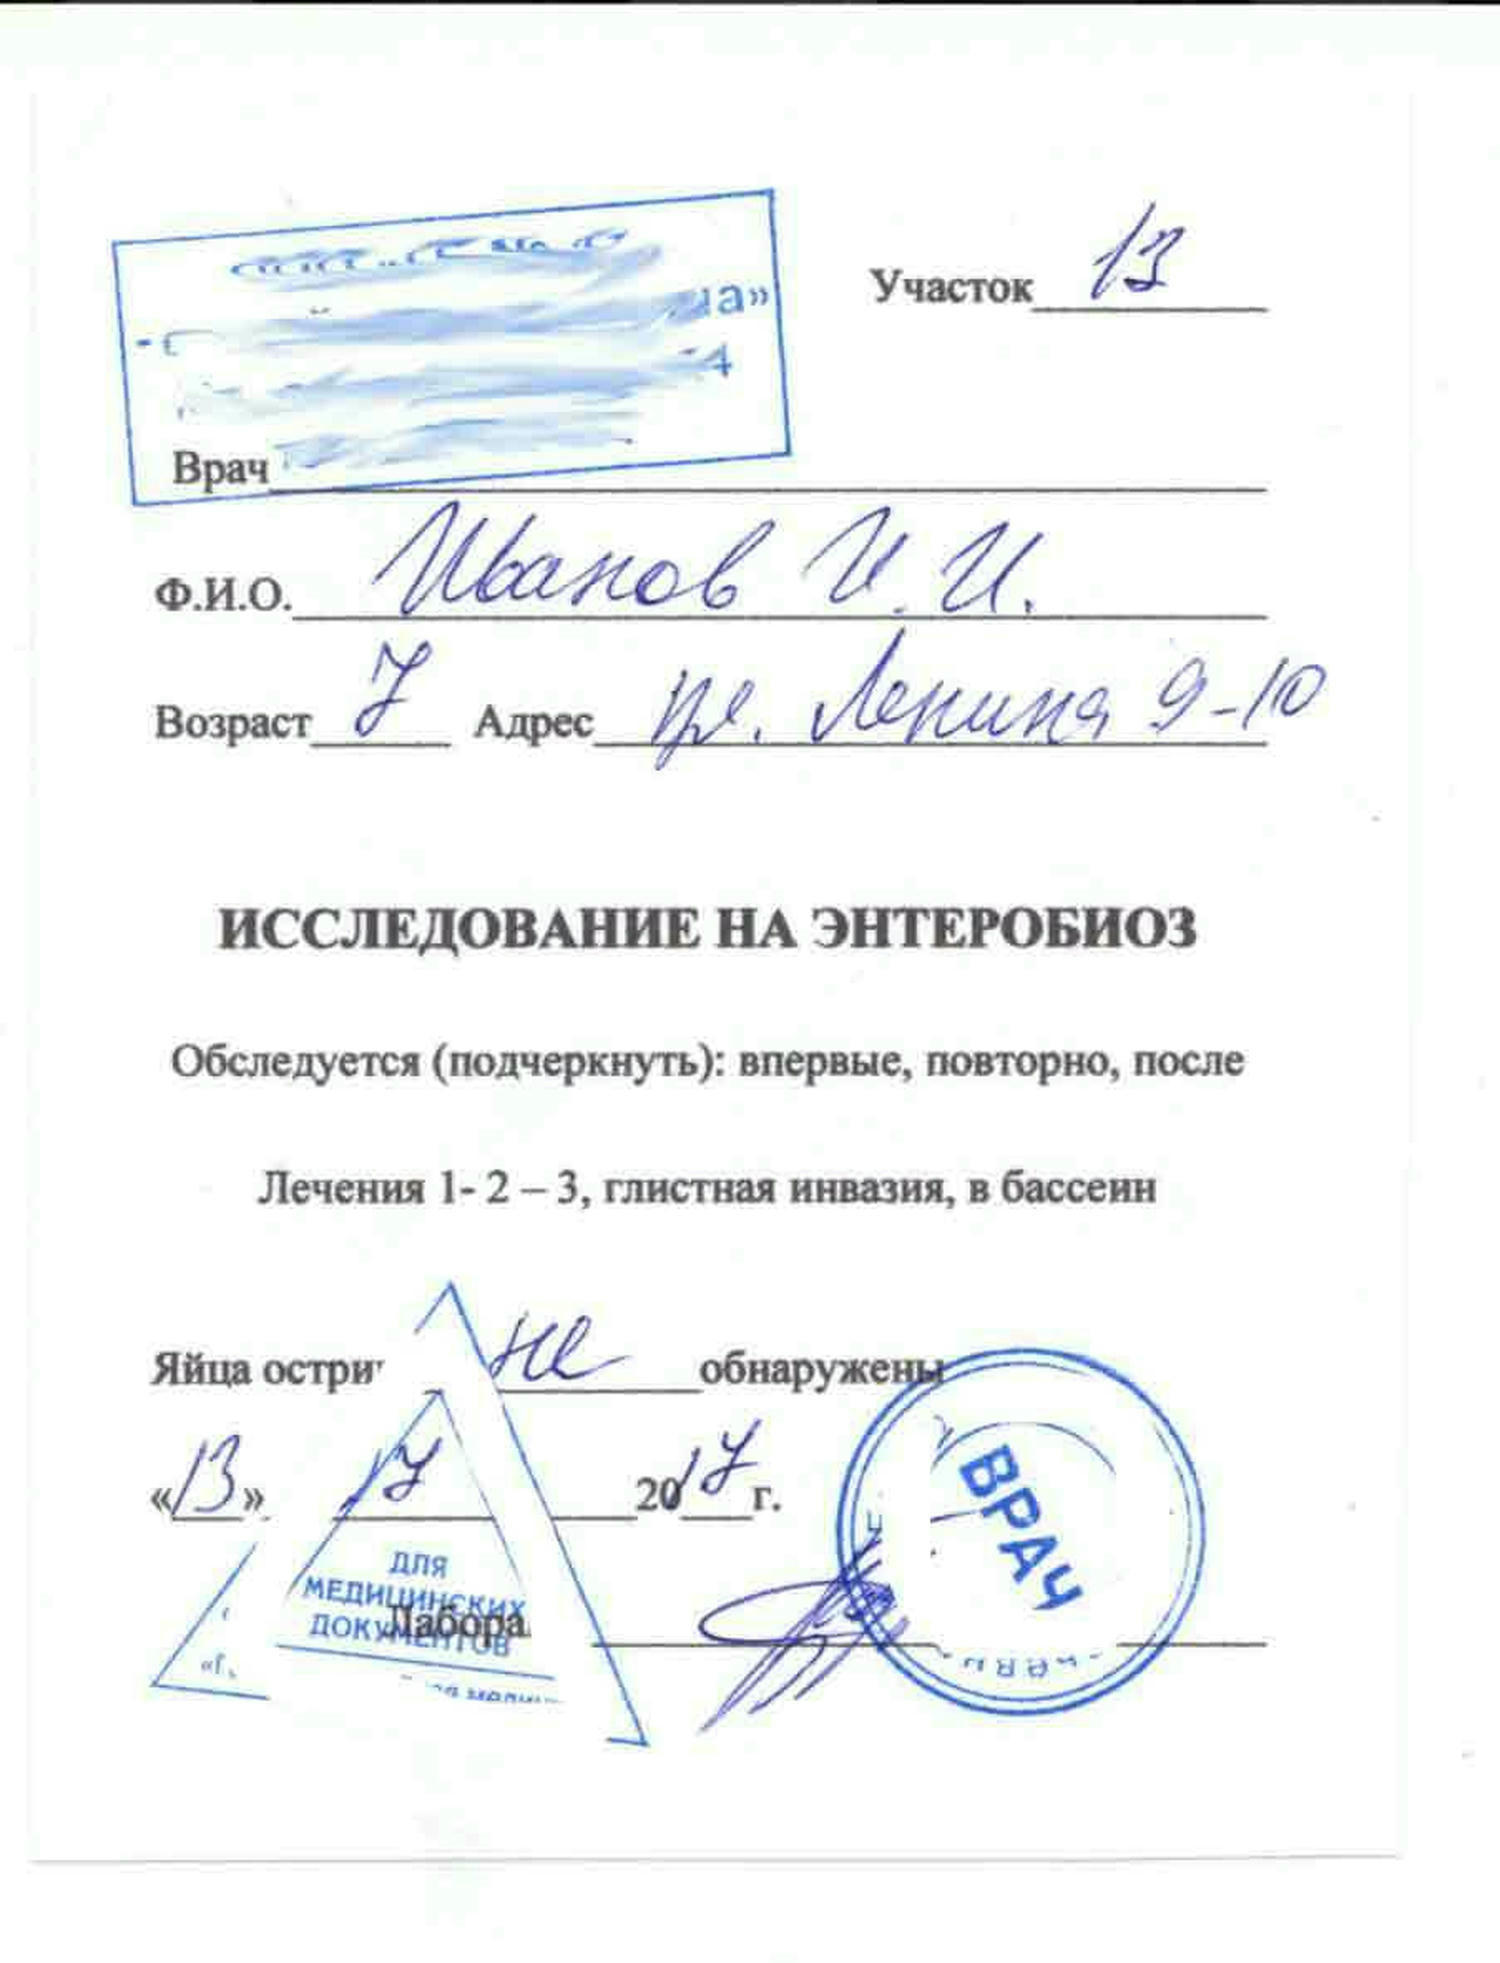 Участок 13
Врач
Ф.И.О. Иванов И. И.
Возраст 7 Адрес ул. Ленина 9-10
ИССЛЕДОВАНИЕ НА ЭНТЕРОБИОЗ
Обследуется (подчеркнуть): впервые, повторно, после
Лечения 1- 2 – 3, глистная инвазия, в бассеин
Яйца остри не обнаружены
«13» 17 2017 г.
ВРАЧ
ДЛЯ
МЕДИЦИНСКИХ
ДОКУМЕНТОВ
Лабора